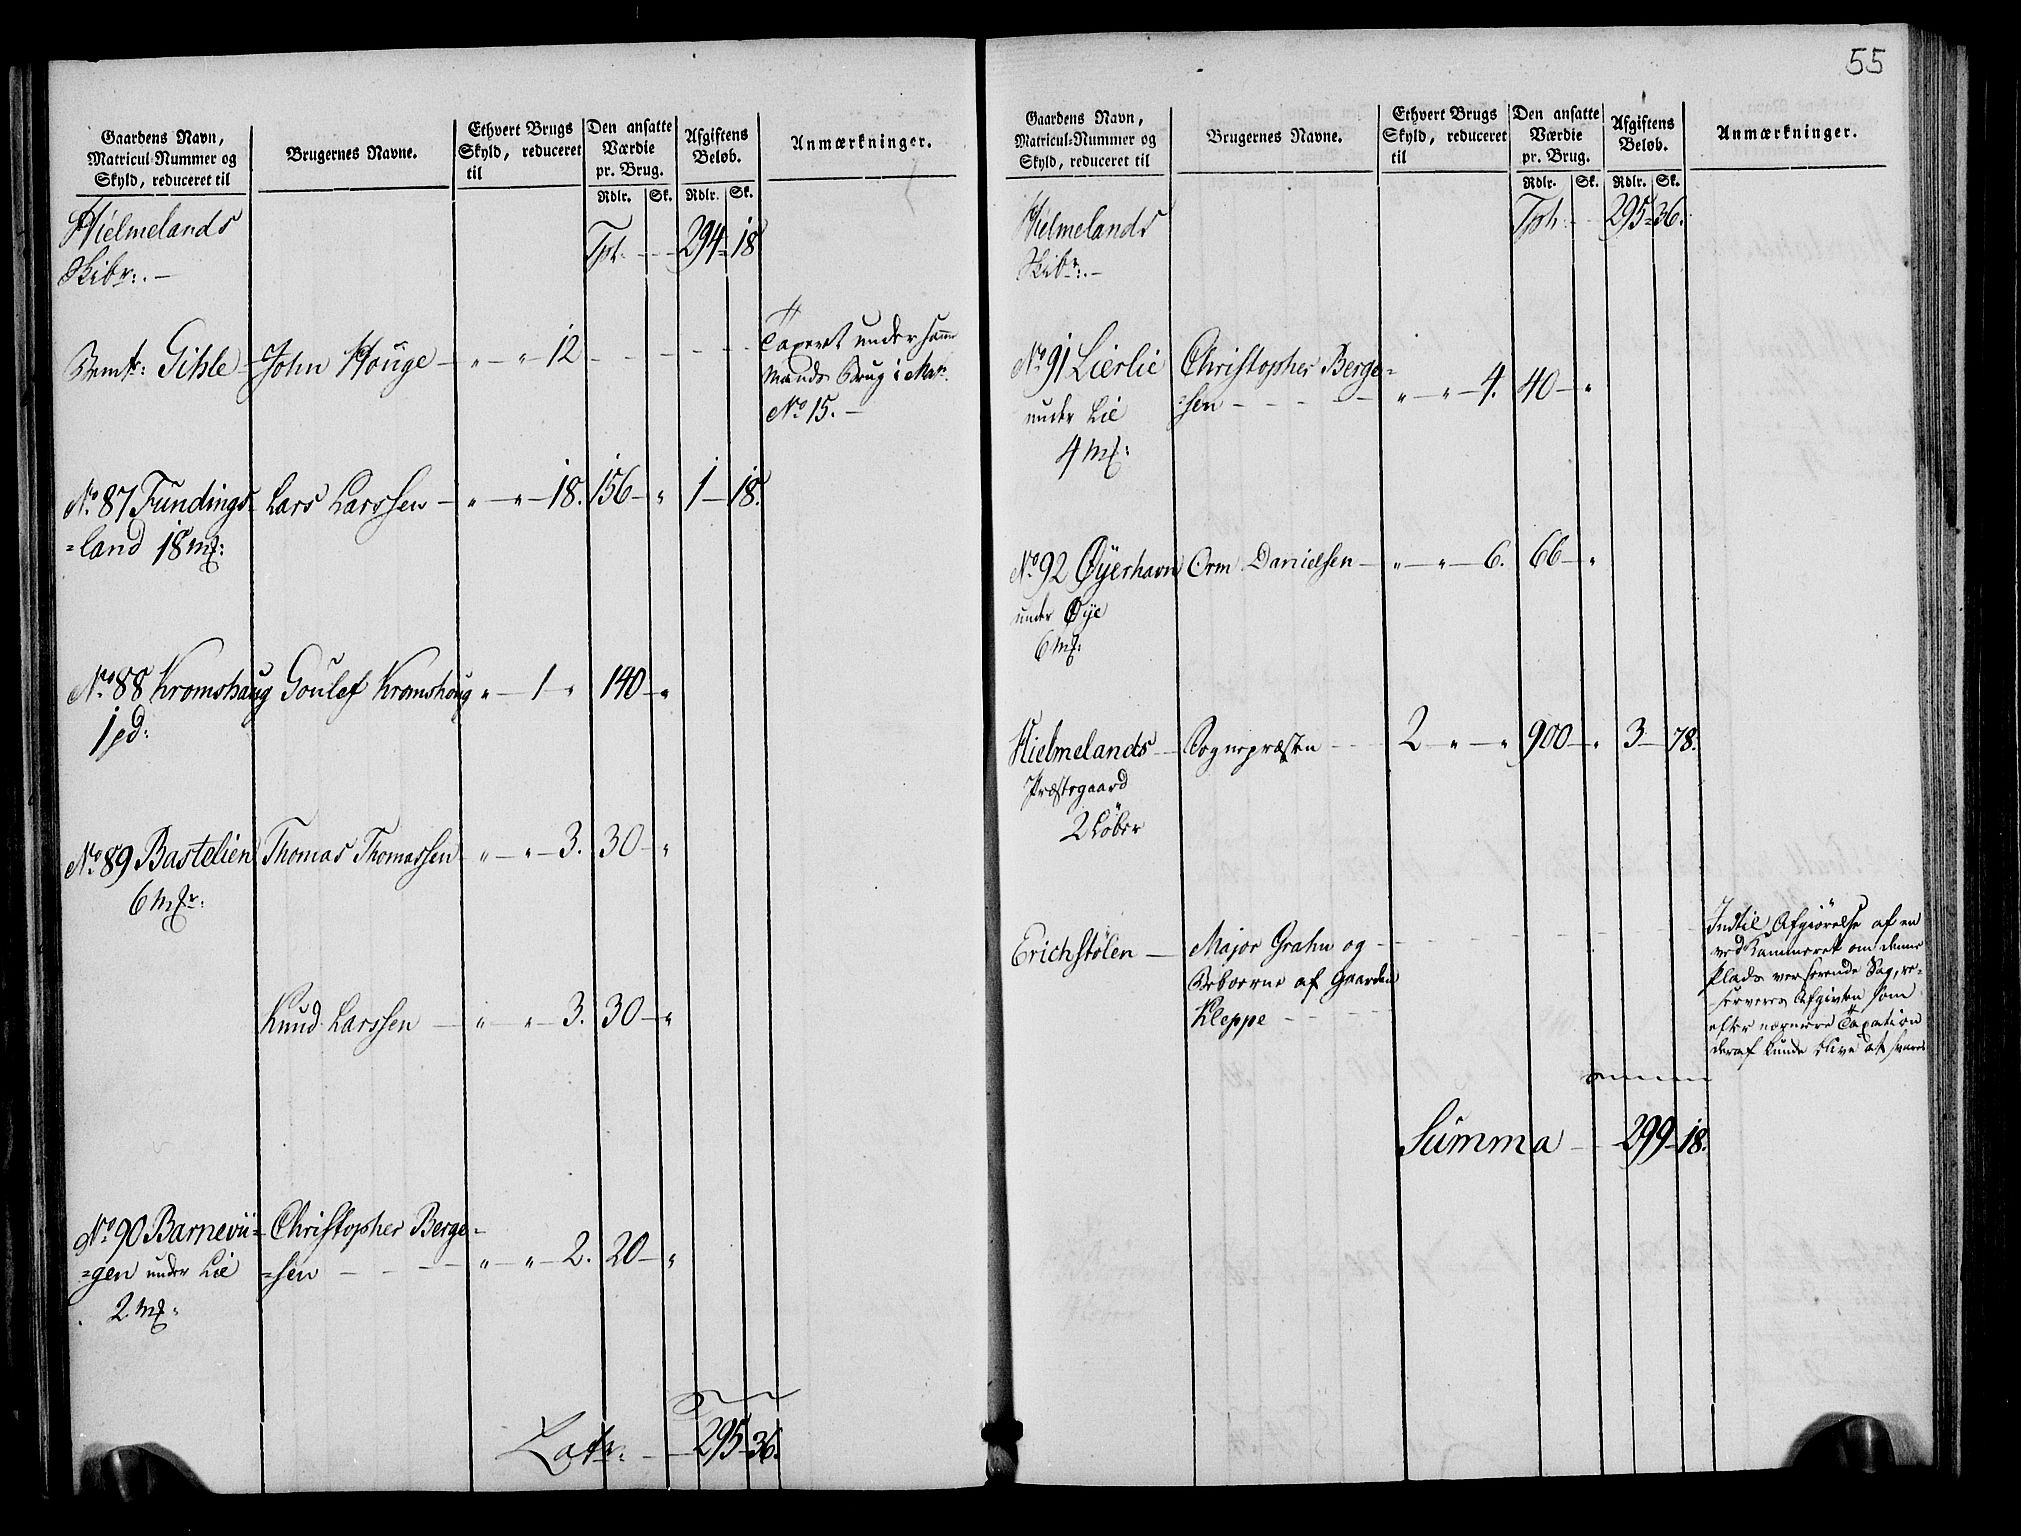 Gaardens Navn,
Matricul-Nummer og
Skyld, reduceret til
Brugernes Navne.
Ethvert Brugs
Skyld, reduceret
til
Den ansatte
Værdie
pr. Brug.
Rdlr. Sk.
Afgiftens
Beløb.
Rdlr. Sk.
Anmærkninger.
Hielmelands
Skibr:.–
Tpt. - - 294 - 18
Bemt: Gihle – John Houge – " – " – 12 - - - - - -
Taxeret under samme
Mands Brug i Matr.
No 15. –
No 87 Fundings- Lars Larssen – " – " – 18. 156 – " 1 – 18.
=land 18 mf:
No 88 Kromshaug Goulef Kromshoug " – 1 " 140 – "
1 pd:
No 89 Bastelien Thomas Thomassen – " – " – 3. 30 – "
6 mfr:
Knud Larssen – " – " – 3. 30 – "
No 90 Barnevii= Christopher Berge=
=gen under Lie =sen - - - - " – " – 2. 20 – "
2 mf:
Latr: - - 295 – 36.
55
Gaardens Navn,
Matricul-Nummer og
Skyld, reduceret til
Brugernes Navne.
Ethvert Brugs
Skyld, reduceret
til
Den ansatte
Værdie
pr. Brug.
Rdlr. Sk.
Afgiftens
Beløb.
Rdlr. Sk.
Anmærkninger.
Hielmelands
Skibr:.–
Tpt. - - 295 – 36.
No 91 Lierlie Christopher Berge=
under Lie =sen - - - - - " – " – 4. 40 – "
4 mf:
No 92 Øyerhavn Orm Danielsen – " – " – 6. 66 – "
under Øye
6 mf:
Hielmelands – Sognepræsten - - - 2 – " – " 900 – " 3 – 78.
Præstegaard
2 Løber
Erichstølen – Major Grahn og - - - - - -
Beboerne af Gaarden
Kleppe - - - -
Indtil Afgiørelse af en
ved Kammeret om denne
Plads verserende Sag, re-
serveres Afgivten som
efter nærmere Taxation
deraf kunde blive at svares
Summa - - 299 – 18.